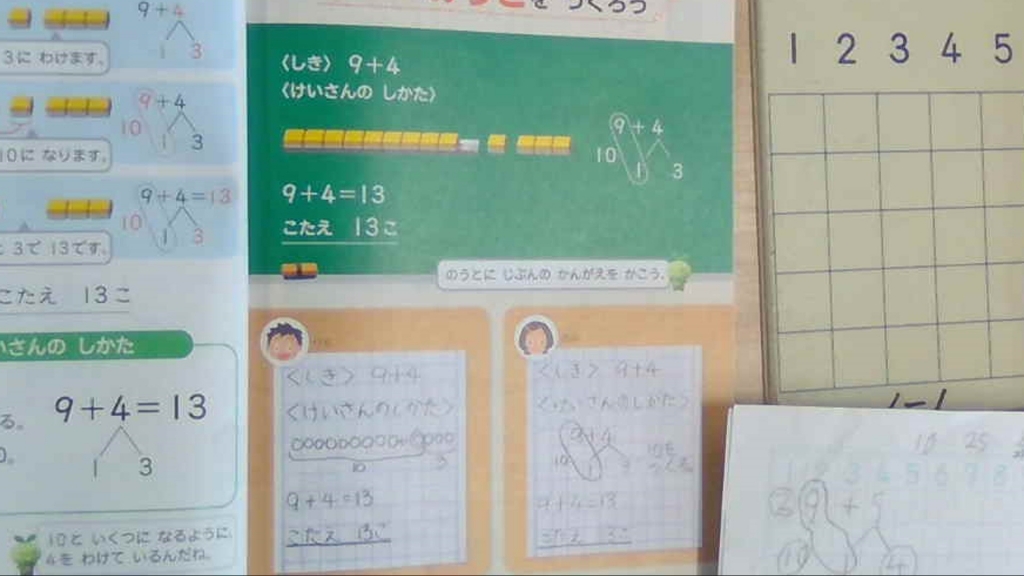 9+4
1 3
3に わけます。
9+4
10
1 3
10に なります。
9+4=13
10
1 3
3で 13です。
こたえ 13こ
さんの しかた
9+4=13
1 3
10と いくつに なるように
4を わけて いるんだね。
を つくろう
〈しき〉 9+4
〈けいさんの しかた〉
9+4
10
1 3
9+4=13
こたえ 13こ
のうとに じぶんの かんがえを かこう。
〈しき〉 9+4
〈けいさんのしかた〉
10 3
9+4=13
こたえ 13こ
〈しき〉 9+4
〈けいさんのしかた〉
9+4
10 1 3
10を
つくる
9+4=13
こたえ 13こ
1 2 3 4 5
10 25
1 2 3 4 5 6 7 8
② 9 + 5
10 1 4